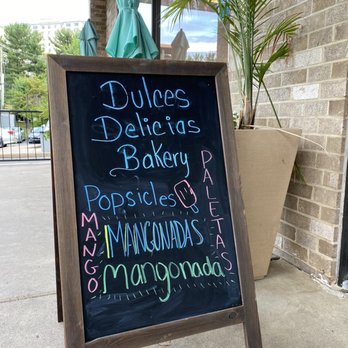 Dulces
Delicias
Bakery
Popsicles
MANGO
PALETAS
MANGONADAS
Mangonada